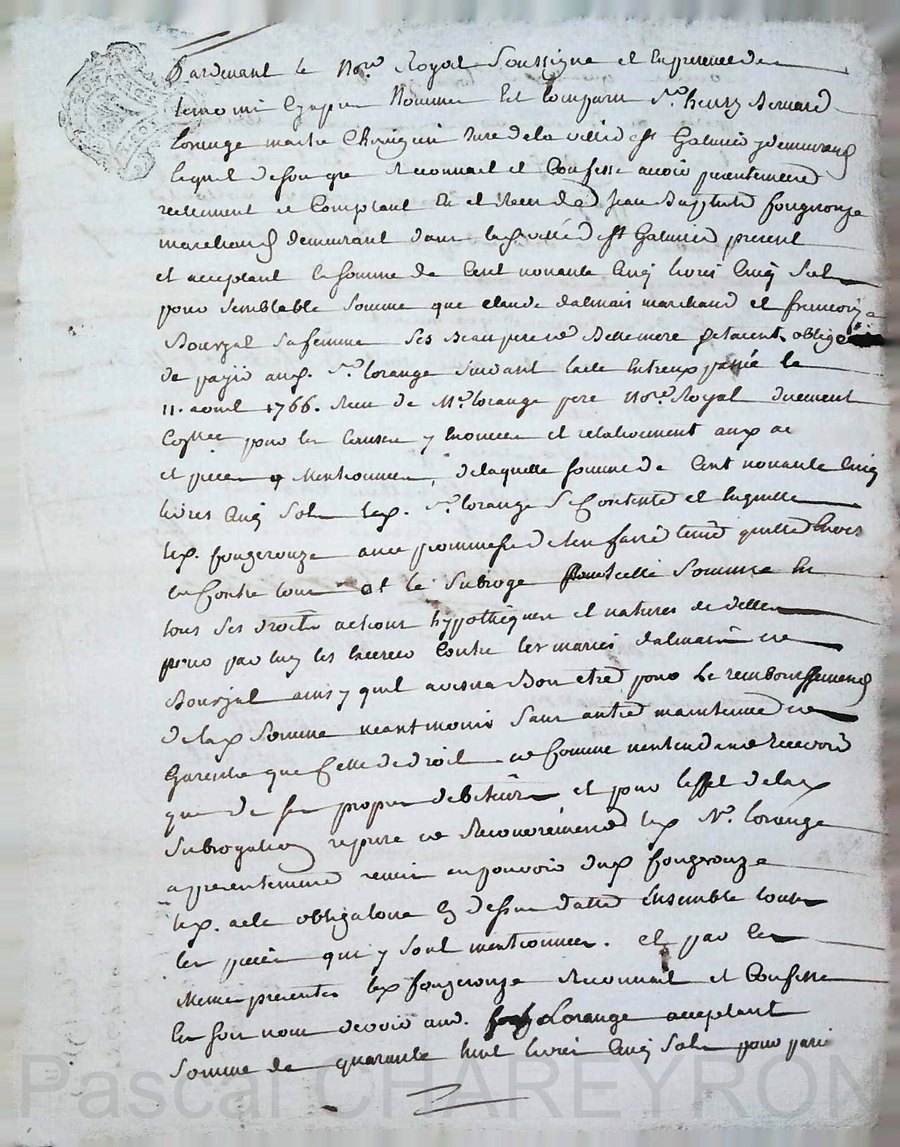 Pardevant le No.re Royal Soussigné et En presence des
temoins Cy apres Nommés Est Comparu S.r henry Bernard
Lorange maitre Chirurgien Juré de la ville de St Galmier y demeurant
lequel de son gré Reconnait et Confesse avoir presentement
reellement et Comptant Eu et Receu de Jean Baptiste fougerouze
marchand demeurant dans la ville de St Galmier present
et acceptant la somme de Cent nonante Cinq livres Cinq Sols
pour semblable somme que claude dalmais marchand et francoise
Bourjal sa femme ses Beau pere et Belle mere setoient obligé
de payer aud. S.r lorange suivant lacte Entreux passé le
11. avril 1766. Receu de M.e lorange pere No.re Royal duement
pour les Causes y Enoncées et relativement aux ac
et pieces y Mentionnées, de laquelle somme de Cent nonante Cinq
livres Cinq Sols led. S.r lorange se Contente et En quitte
led. fougerouze avec promesse de l'en faire tenir quitte Envers
et Contre tous et le subroge pour icelle somme En
tous ses droits actions hypotheques et natures de
pour par luy les Exercer Contre les mariés dalmais et
Bourjal ainsy quil avisera Bon etre pour le remboursement
de lad. somme neantmoins sans autre maintenue et
Garentie que Celle de droit et Comme nentendant recevoir
que de ses propres debiteurs et pour leffet de lad.
subrogation reprise et Recouvrement led. S.r lorange
a presentement remis au pouvoir dud. fougerouze
led. acte obligatoire Cy dessus datté Ensemble toutes
les pieces qui y sont mentionnées. et par les
Memes presentes led. fougerouze Reconnait et Confesse
En son nom devoir aud. Lorange acceptant
somme de quarante huit livres Cinq Sols pour
Pascal CHAREYRON